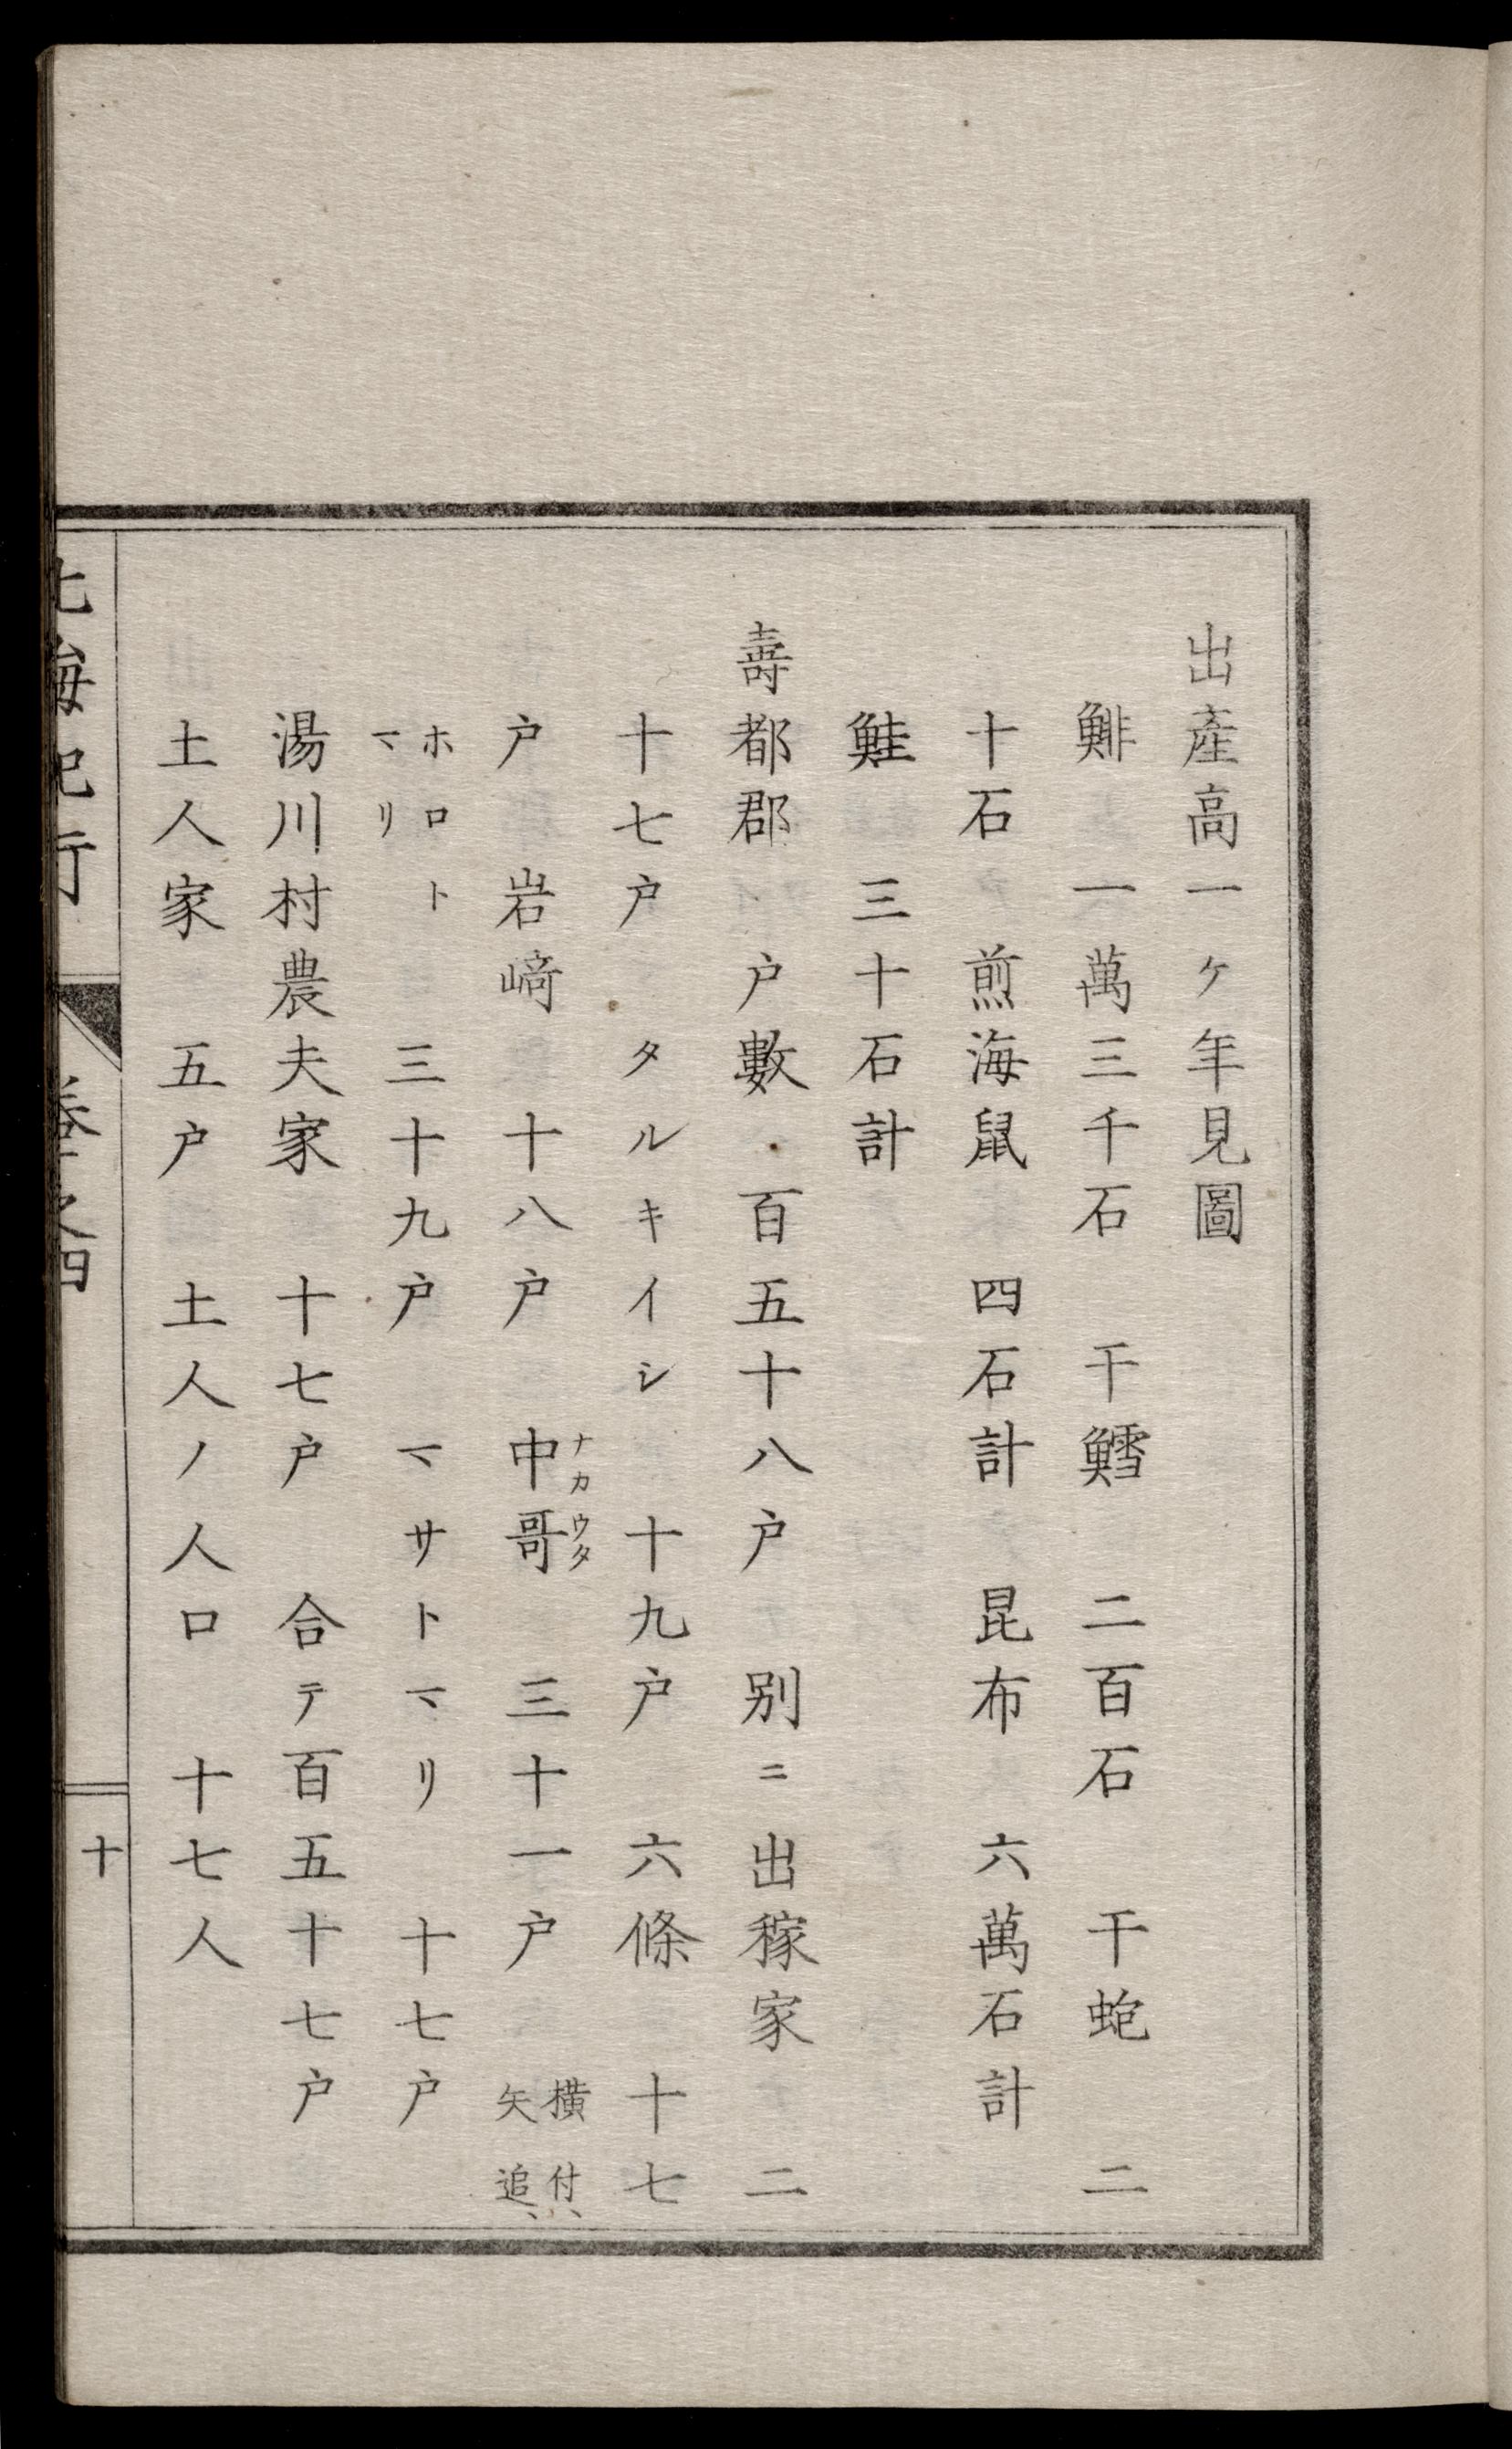 出産高一ケ年見圖
鯡　一萬三千石　干鱈　二百石　干蚫　二
十石　煎海鼠　四石計　昆布　六萬石計
鮭　三十石計
壽都郡　戸數　百五十八戸　别ニ出稼家　二
十七戸　タルキイシ　十九戸　六條　十七
戸　岩﨑　十八戸　中哥　三十一戸　横付、
ナカウタ
矢追、
ホロト
マリ　三十九戸　マサトマリ　十七戸
湯川村農夫家　十七戸　合テ百五十七戸
土人家　五戸　土人ノ人口　十七人
北海紀行　卷之四　十